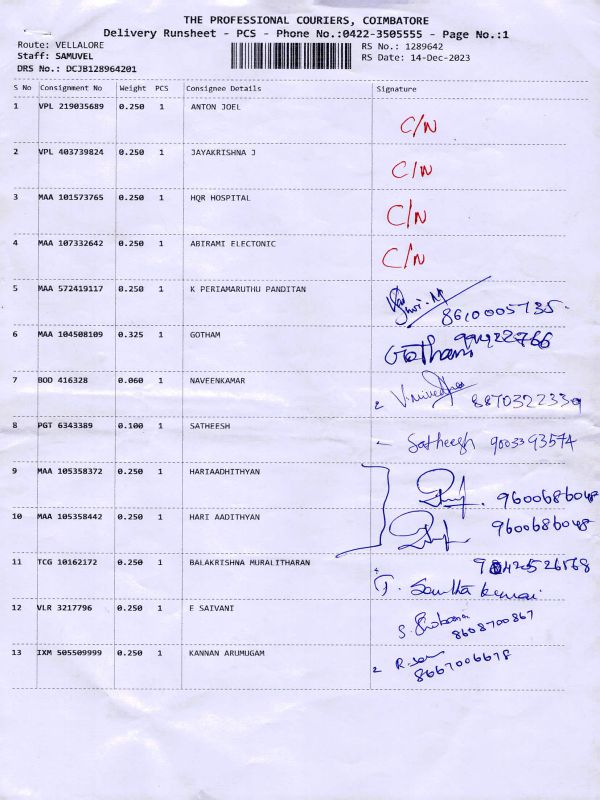 THE PROFESSIONAL COURIERS, COIMBATORE
Delivery Runsheet - PCS - Phone No.:0422-3505555 - Page No.:1
Route: VELLALORE RS No.: 1289642
Staff: SAMUVEL RS Date: 14-Dec-2023
DRS No.: DCJB128964201
S No Consignment No Weight PCS Consignee Details Signature
1 VPL 219035689 0.250 1 ANTON JOEL C/N
2 VPL 403739824 0.250 1 JAYAKRISHNA J C/N
3 MAA 101573765 0.250 1 HQR HOSPITAL C/N
4 MAA 107332642 0.250 1 ABIRAMI ELECTONIC C/N
5 MAA 572419117 0.250 1 K PERIAMARUTHU PANDITAN 8610005735
6 MAA 104508109 0.325 1 GOTHAM Gotham
7 BOD 416328 0.060 1 NAVEENKAMAR 8870322339
8 PGT 6343389 0.100 1 SATHEESH Satheesh 9003393574
9 MAA 105358372 0.250 1 HARIAADHITHYAN 9600686048
10 MAA 105358442 0.250 1 HARI AADITHYAN 9600686048
11 TCG 10162172 0.250 1 BALAKRISHNA MURALITHARAN
12 VLR 3217796 0.250 1 E SAIVANI 8608700867
13 IXM 505509999 0.250 1 KANNAN ARUMUGAM 8667006678